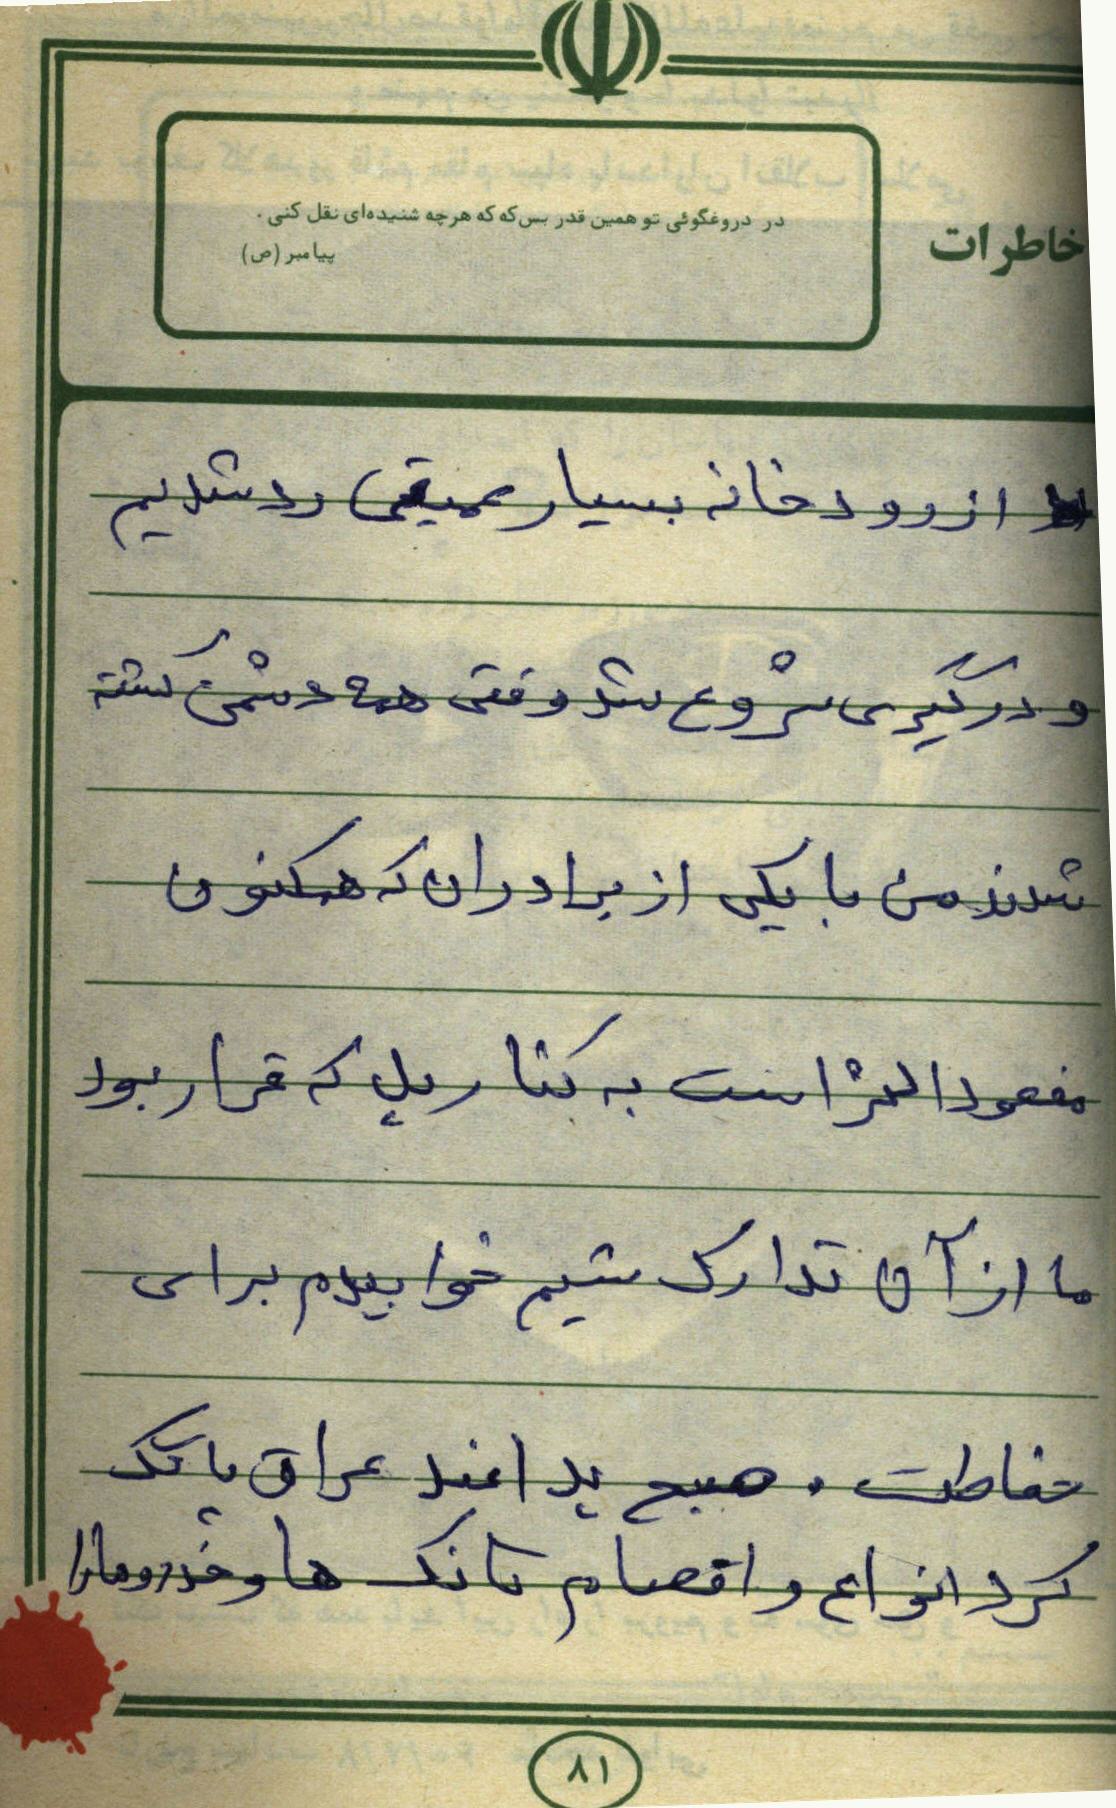 خاطرات
در دروغگوئی تو همین قدر بس که که هرچه شنیده‌ای نقل کنی .
پیامبر (ص)
از رودخانه بسیار عمیقی رد شدیم
و درگیری شروع شد وقتی همه دشمن کشته
شدند من با یکی از برادران که هم‌کنون
مفعود الاثر است به کنار پل که قرار بود
ما از آن تدارک شیم خوابیدم برای
حفاطت . صبح پد افند عراق پاتک
کرد انواع و اقصام تانک ها و خدروها را
۸۱